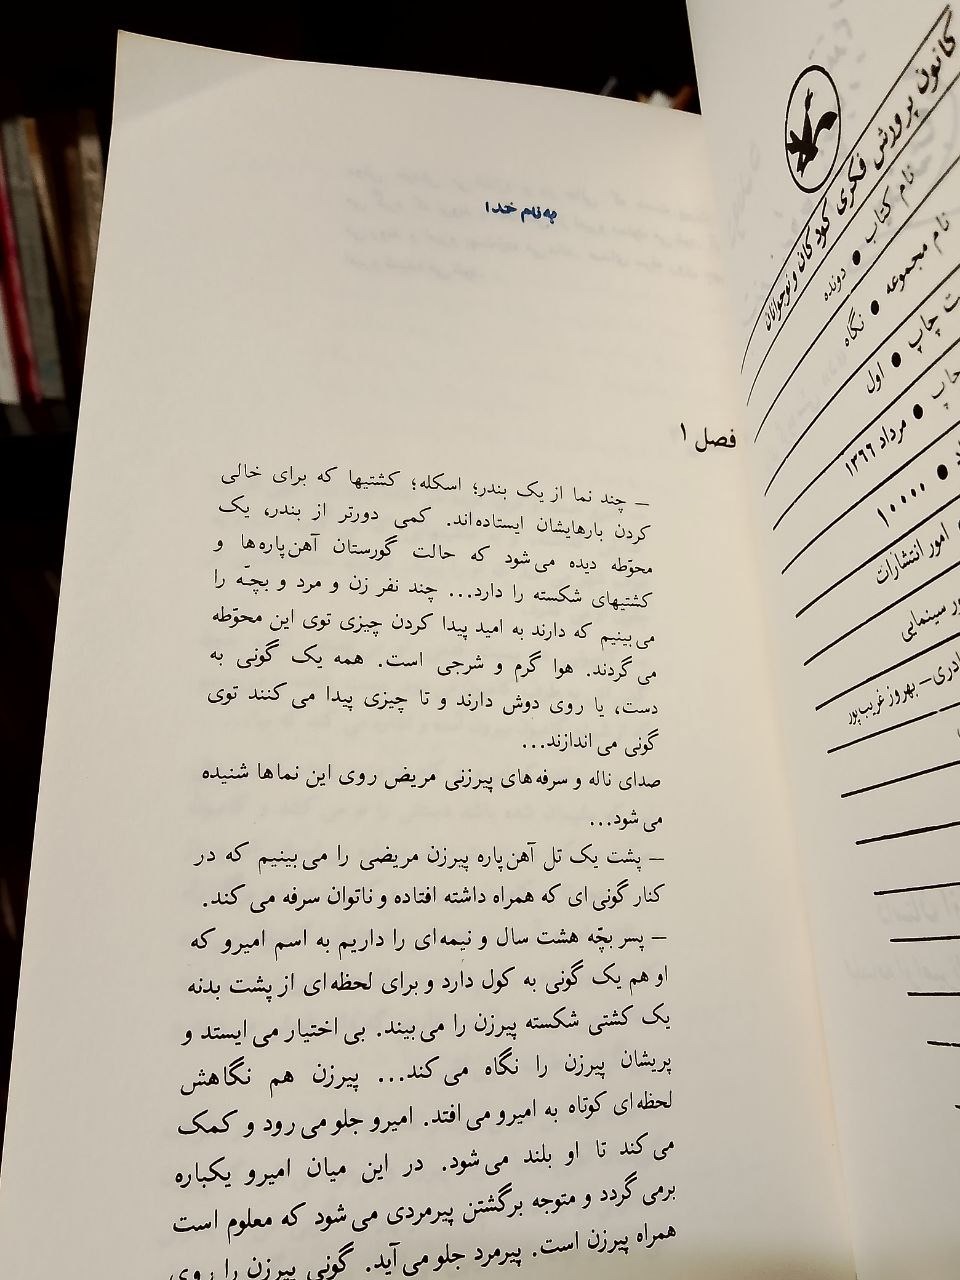 به نام خدا
فصل ۱
– چند نما از یک بندر؛ اسکله؛ کشتیها که برای خالی
کردن بارهایشان ایستاده‌اند. کمی دورتر از بندر، یک
محوّطه دیده می‌شود که حالت گورستان آهن‌پاره‌ها و
کشتیهای شکسته را دارد... چند نفر زن و مرد و بچّه را
می‌بینیم که دارند به امید پیدا کردن چیزی توی این محوّطه
می‌گردند. هوا گرم و شرجی است. همه یک گونی به
دست، یا روی دوش دارند و تا چیزی پیدا می‌کنند توی
گونی می‌اندازند...
صدای ناله و سرفه‌های پیرزنی مریض روی این نماها شنیده
می‌شود...
– پشت یک تل آهن‌پاره پیرزن مریضی را می‌بینیم که در
کنار گونی‌ای که همراه داشته افتاده و ناتوان سرفه می‌کند.
– پسر بچّه هشت سال و نیمه‌ای را داریم به اسم امیرو که
او هم یک گونی به کول دارد و برای لحظه‌ای از پشت بدنه
یک کشتی شکسته پیرزن را می‌بیند. بی‌اختیار می‌ایستد و
پریشان پیرزن را نگاه می‌کند... پیرزن هم نگاهش
لحظه‌ای کوتاه به امیرو می‌افتد. امیرو جلو می‌رود و کمک
می‌کند تا او بلند می‌شود. در این میان امیرو یکباره
برمی‌گردد و متوجه برگشتن پیرمردی می‌شود که معلوم است
همراه پیرزن است. پیرمرد جلو می‌آید. گونی پیرزن را روی
کانون پرورش فکری کودکان و نوجوانان
نام کتاب ● دونده
نام مجموعه ● نگاه
چاپ ● اول
چاپ ● مرداد ۱۳۶۶
● ۱۰۰۰۰
امور انتشارات
سینمایی
– بهروز غریب‌پور